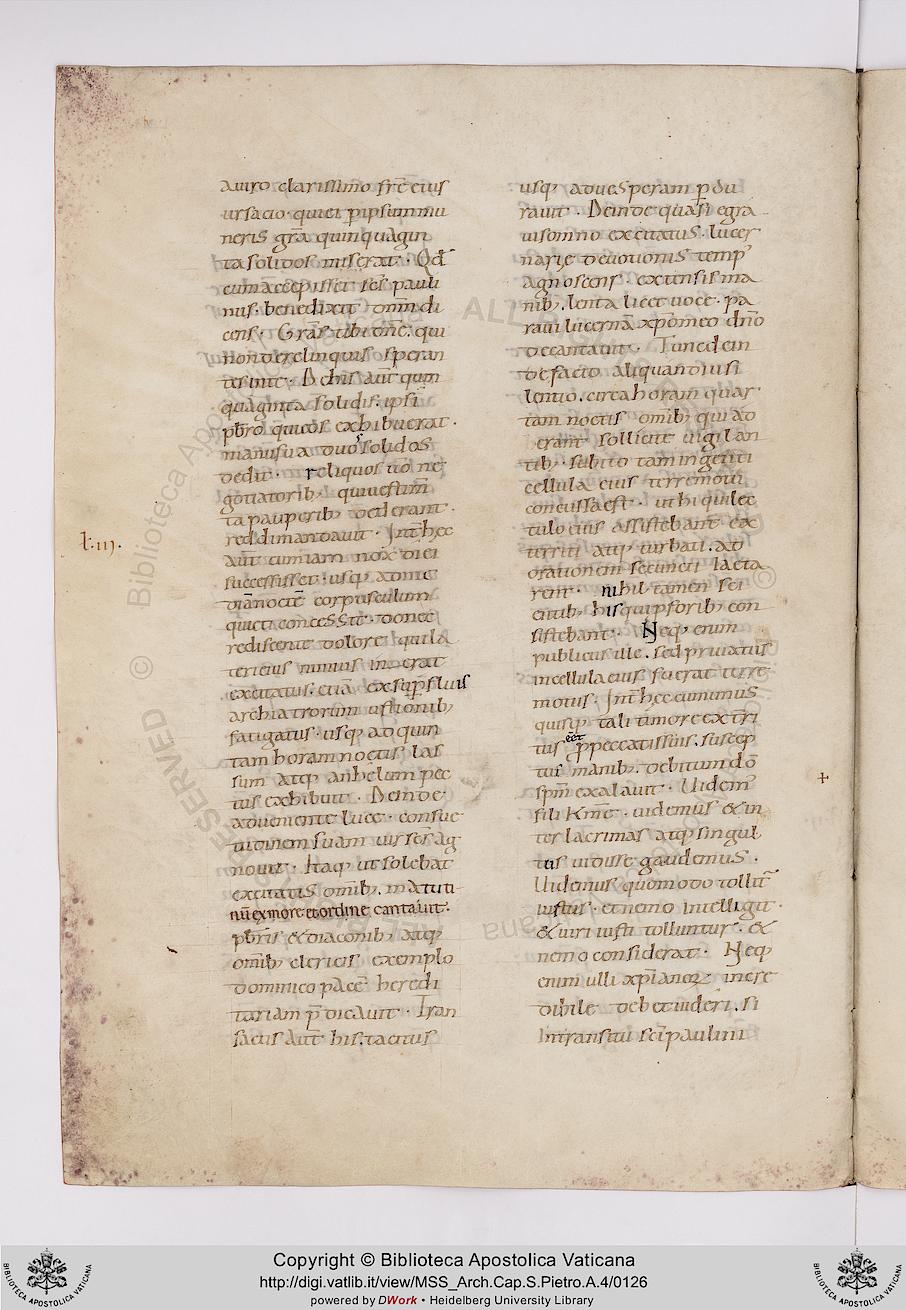 a viro clarissimo fr̄e eius
ursacio. quiei p̲ ipsum mu
neris grā quinquagin
ta solidos miserat. Qd̄
cum accepisset sc̄s pauli
nus. benedixit dn̄m di
cens. Grās tibi dn̄e. qui
non derelinquis speran
tes in te. De his aut̄ quin
quaginta solidis. ipsi
pb̄ro qui eos exhibuerat.
manu sua duos solidos
dedit. reliquos u͞o ne
gotiatorib; qui vestim̄
ta pauperib; dederant.
reddi mandavit. Int̄ hęc
aut̄ cum iam nox diei
successisset. usq; ad me
diā noctē corpusculum
quieti concessit. donec
rediscente dolore qui la
teri eius nimius inerat
excitatus. etiā ex sup̲fluis
archiatrorum ustionib;
fatigatus. usq; ad quin
tam horam noctis las
sum atq; anhelum pec
tus exhibuit. Deinde
adveniente luce. consue
tudinem suam vir sc̄s ag
novit. Itaq; ut solebat
excitatis omib; matuti
nū ex more et ordine cantavit.
pb̄ris & diaconib; atq;
omib; clericis exemplo
dominico pacē heredi
tariam p̄dicavit. Tran
sactis aut̄ his. tacitus
usq; ad vesperam p̲du
ravit. Deinde quasi e gra
vi somno excitatus. lucer
narię devotionis temp'
agnoscens. extensis ma
nib; lenta licet voce. pa
ravi lucernā xp̄o meo dn̄o
decantavit. Tunc dein
de facto aliquandiu si
lentio. circa horam quar
tam noctis omib; qui ad
erant sollicite vigilan
tib; subito tam ingenti
cellula eius terremotu
concussa est. ut hi qui lec
tulo eius assistebant ex
territi atq; turbati. ad
orationem se cuncti iacta
rent. nihil tamen sci
entib; his qui p̲ forib; con
sistebant. Neq; enim
publicus ille. sed privatus
in cellula eius fuerat terre
motus. Int̄ hęc cum unus
quisq; tali timore ext̄ri
tus
eēt
p̲ peccatis suis. suscep
tus manib; debitum dō
sp̄m exalavit. Videm'
fili Km̄e. videmus & in
ter lacrimas atq; singul
tus vidisse gaudemus.
Videmus quomodo tollit̄
iustus. et nemo intelligit.
& viri iusti tolluntur. &
nemo considerat. Neq;
enim ulli xp̄ianoꝝ incre
dibile debet videri. si
In transitu sc̄i paulini
+
Copyright © Biblioteca Apostolica Vaticana
http://digi.vatlib.it/view/MSS_Arch.Cap.S.Pietro.A.4/0126
powered by DWork • Heidelberg University Library
BIBLIOTECA APOSTOLICA VATICANA
BIBLIOTECA APOSTOLICA VATICANA